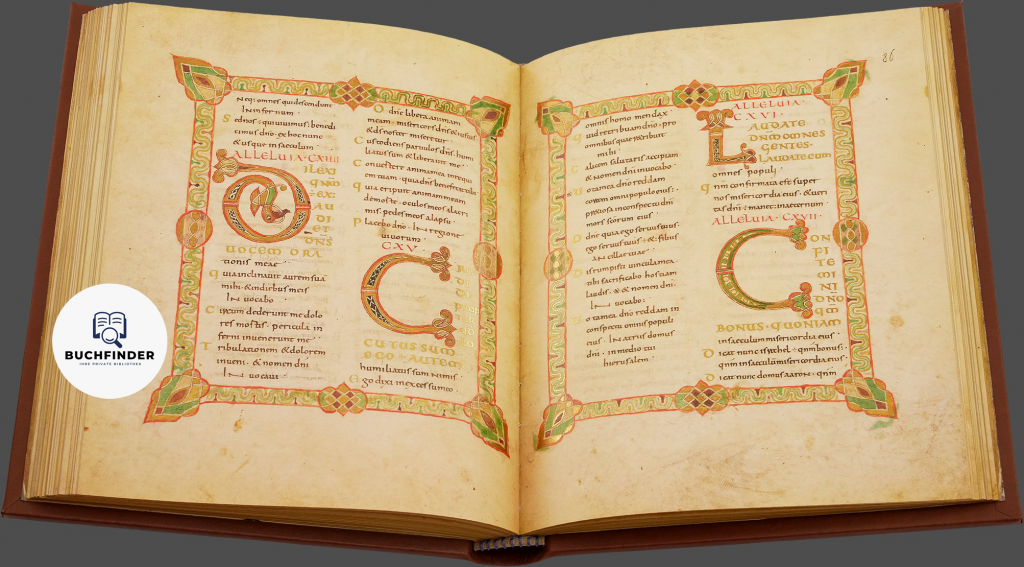 Neq: omnes qui descendunt
In infernum
Sed nos qui uiuimus: benedi
cimus dno ex hoc nunc
& usque in saeculum
ALLELUIA · CXIIII
D ILEXI
QNM
EX
AU
DI
ET
DNS
UOCEM ORA
tionis meae
quia inclinauit aurem sua
mihi · & in diebus meis
In uocabo
Circum dederunt me dolo
res mortis · periculi in
ferni inuenerunt me
Tribulationem & dolorem
inueni · & nomen dni
In uocaui
O dne libera animam
meam · misericors dns & iustus
& ds noster miseretur
Custodiens paruulos dns · humi
liatus sum & liberauit me
Conuertere anima mea in requi
em tuam · quia dns benefecit
quia eripuit animam meam
de morte · oculos meos a lacri
mis · pedes meos a lapsu
Placebo dno · In regione
uiuorum
CXV
C
CUTUS SUM
EGO · AUTEM
humiliatus sum nimis
Ego dixi in excessu meo
86
omnis homo mendax
quid retribuam dno · pro
omnibus quae retribuit
mihi
Calicem salutaris accipiam
& nomen dni inuocabo
Uota mea dno reddam
coram omni populo eius
praetiosa in conspectu dni
mors scorum eius
O dne quia ego seruus tuus
ego seruus tuus · & filius
ancillae tuae
Disrumpisti uincula mea
tibi sacrificabo hostiam
laudis · & & nomen dni
In uocabo
Uota mea dno reddam in
conspectu omnis populi
eius · In atriis domus
dni · in medio tui
hierusalem
ALLELUIA ·
CXVI ·
L AUDATE
DNM OMNES
GENTES ·
LAUDATE EUM
omnes populi
qnm confirmata est super
nos misericordia eius · & ueri
tas dni · manet in aeternum
ALLELUIA · CXVII ·
C ON
FI
TE
MI
NI
DNO
QM
BONUS · QUONIAM
in saeculum misericordia eius
Dicat nunc israhel · qnm bonus
qnm in saeculum misericordia eius
Dicat nunc domus aaron · qnm
BUCHFINDER
IHRE PRIVATE BIBLIOTHEK